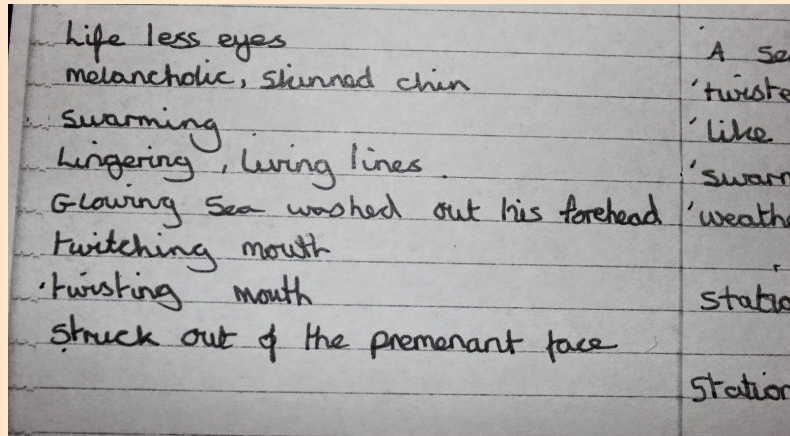 Life less eyes
melancholic, skinned chin
swarming
Lingering, living lines.
Glowing Sea washed out his forehead
twitching mouth
twisting mouth
struck out of the premenant face
A
'twiste
'like
'swarn
'weathe
static
station